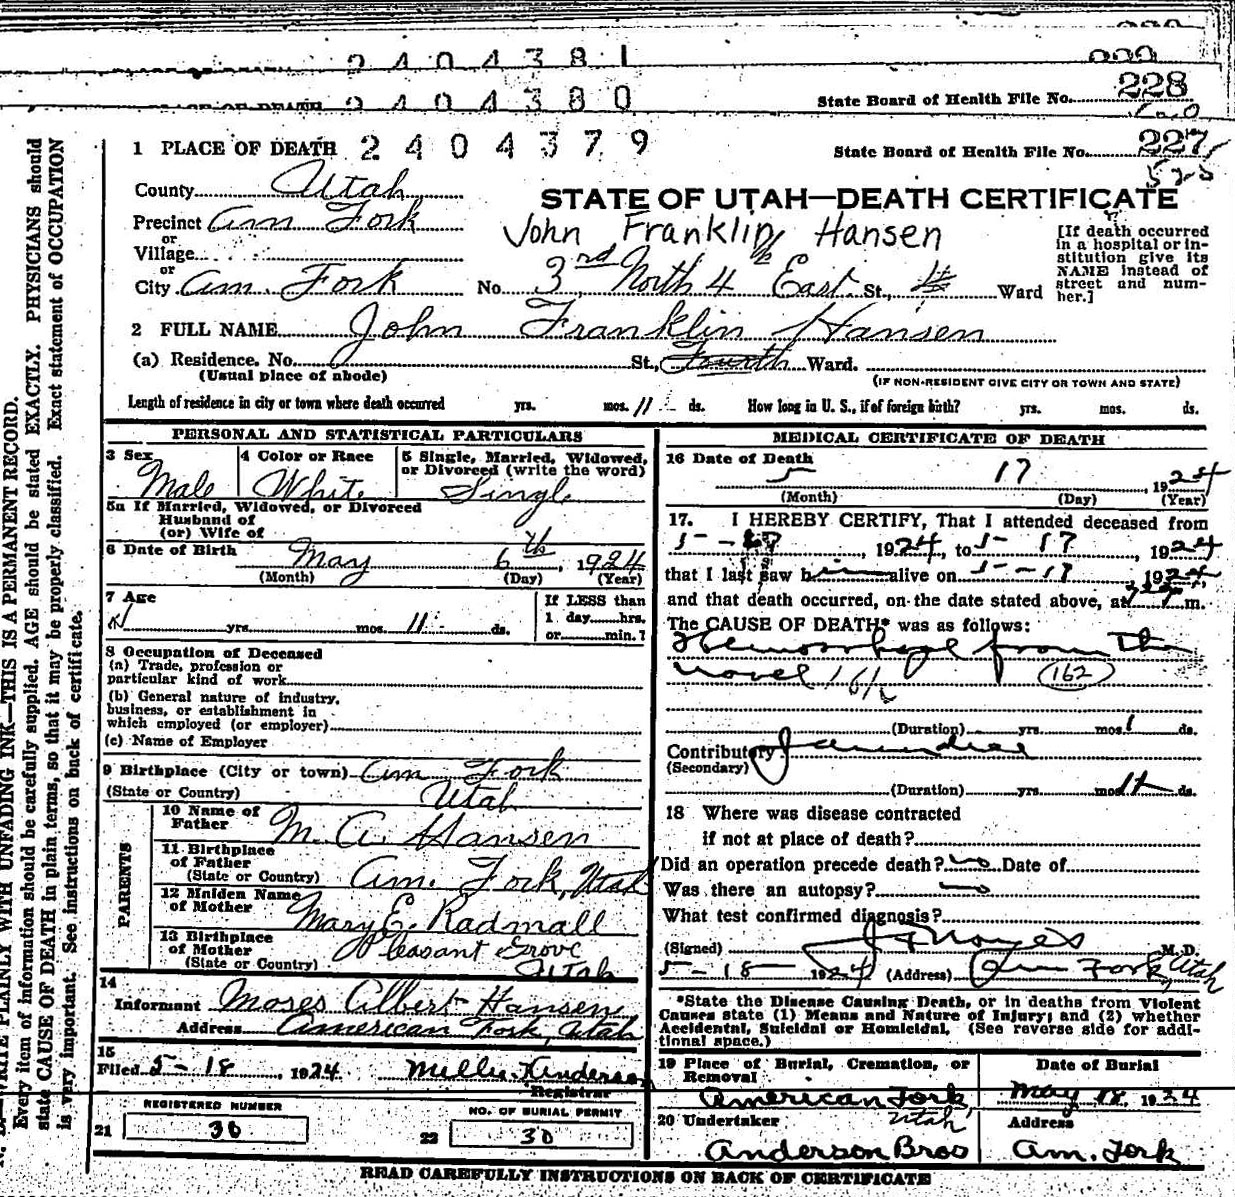 2404381
2404380 State Board of Health File No. 228
1 PLACE OF DEATH 2404379 State Board of Health File No. 227
525
County Utah
STATE OF UTAH—DEATH CERTIFICATE
Precinct Am Fork
John Franklin Hansen
or
Village
[If death occurred in a hospital or institution give its NAME instead of street and number.]
or
City Am. Fork No. 3rd North 4th East St., 4 Ward
2 FULL NAME John Franklin Hansen
(a) Residence. No. St., Fourth Ward.
(Usual place of abode) (IF NON-RESIDENT GIVE CITY OR TOWN AND STATE)
Length of residence in city or town where death occurred yrs. mos. 11 ds. How long in U. S., if of foreign birth? yrs. mos. ds.
PERSONAL AND STATISTICAL PARTICULARS
3 Sex Male
4 Color or Race White
5 Single, Married, Widowed, or Divorced (write the word) Single
5a If Married, Widowed, or Divorced
Husband of
(or) Wife of
6 Date of Birth May 6th, 1924
(Month) (Day) (Year)
7 Age yrs. mos. 11 ds.
If LESS than
1 day hrs.
or min.?
8 Occupation of Deceased
(a) Trade, profession or
particular kind of work
(b) General nature of industry,
business, or establishment in
which employed (or employer)
(c) Name of Employer
9 Birthplace (City or town) Am Fork
(State or Country) Utah
PARENTS
10 Name of Father M. A. Hansen
11 Birthplace of Father (State or Country) Am. Fork, Utah
12 Maiden Name of Mother Mary E. Radmall
13 Birthplace of Mother (State or Country) Pleasant Grove Utah
14
Informant Moses Albert Hansen
Address American Fork, Utah
15
Filed 5-18, 1924
Registrar
REGISTERED NUMBER
21 30
NO. OF BURIAL PERMIT
22 30
MEDICAL CERTIFICATE OF DEATH
16 Date of Death 5 17, 1924
(Month) (Day) (Year)
17. I HEREBY CERTIFY, That I attended deceased from
, 1924, to 5-17, 1924
that I last saw him alive on 5-17 1924
and that death occurred, on the date stated above, at m.
The CAUSE OF DEATH* was as follows:
Hemorrhage from the
navel 161/2 (162)
(Duration) yrs. mos. 1 ds.
Contributory Jaundice
(Secondary)
(Duration) yrs. mos. 11 ds.
18 Where was disease contracted
if not at place of death?
Did an operation precede death? no Date of
Was there an autopsy? no
What test confirmed diagnosis?
(Signed) Noyes M.D.
5-18 1924 (Address) Am Fork, Utah
*State the Disease Causing Death, or in deaths from Violent
Causes state (1) Means and Nature of Injury; and (2) whether
Accidental, Suicidal or Homicidal. (See reverse side for addi-
tional space.)
19 Place of Burial, Cremation, or Removal
American Fork
Utah
Date of Burial
May 18, 1924
20 Undertaker
Anderson Bros
Address
Am. Fork
READ CAREFULLY INSTRUCTIONS ON BACK OF CERTIFICATE
WRITE PLAINLY WITH UNFADING INK—THIS IS A PERMANENT RECORD.
Every item of information should be carefully supplied. AGE should be stated EXACTLY. PHYSICIANS should
state CAUSE OF DEATH in plain terms, so that it may be properly classified. Exact statement of OCCUPATION
is very important. See instructions on back of certificate.